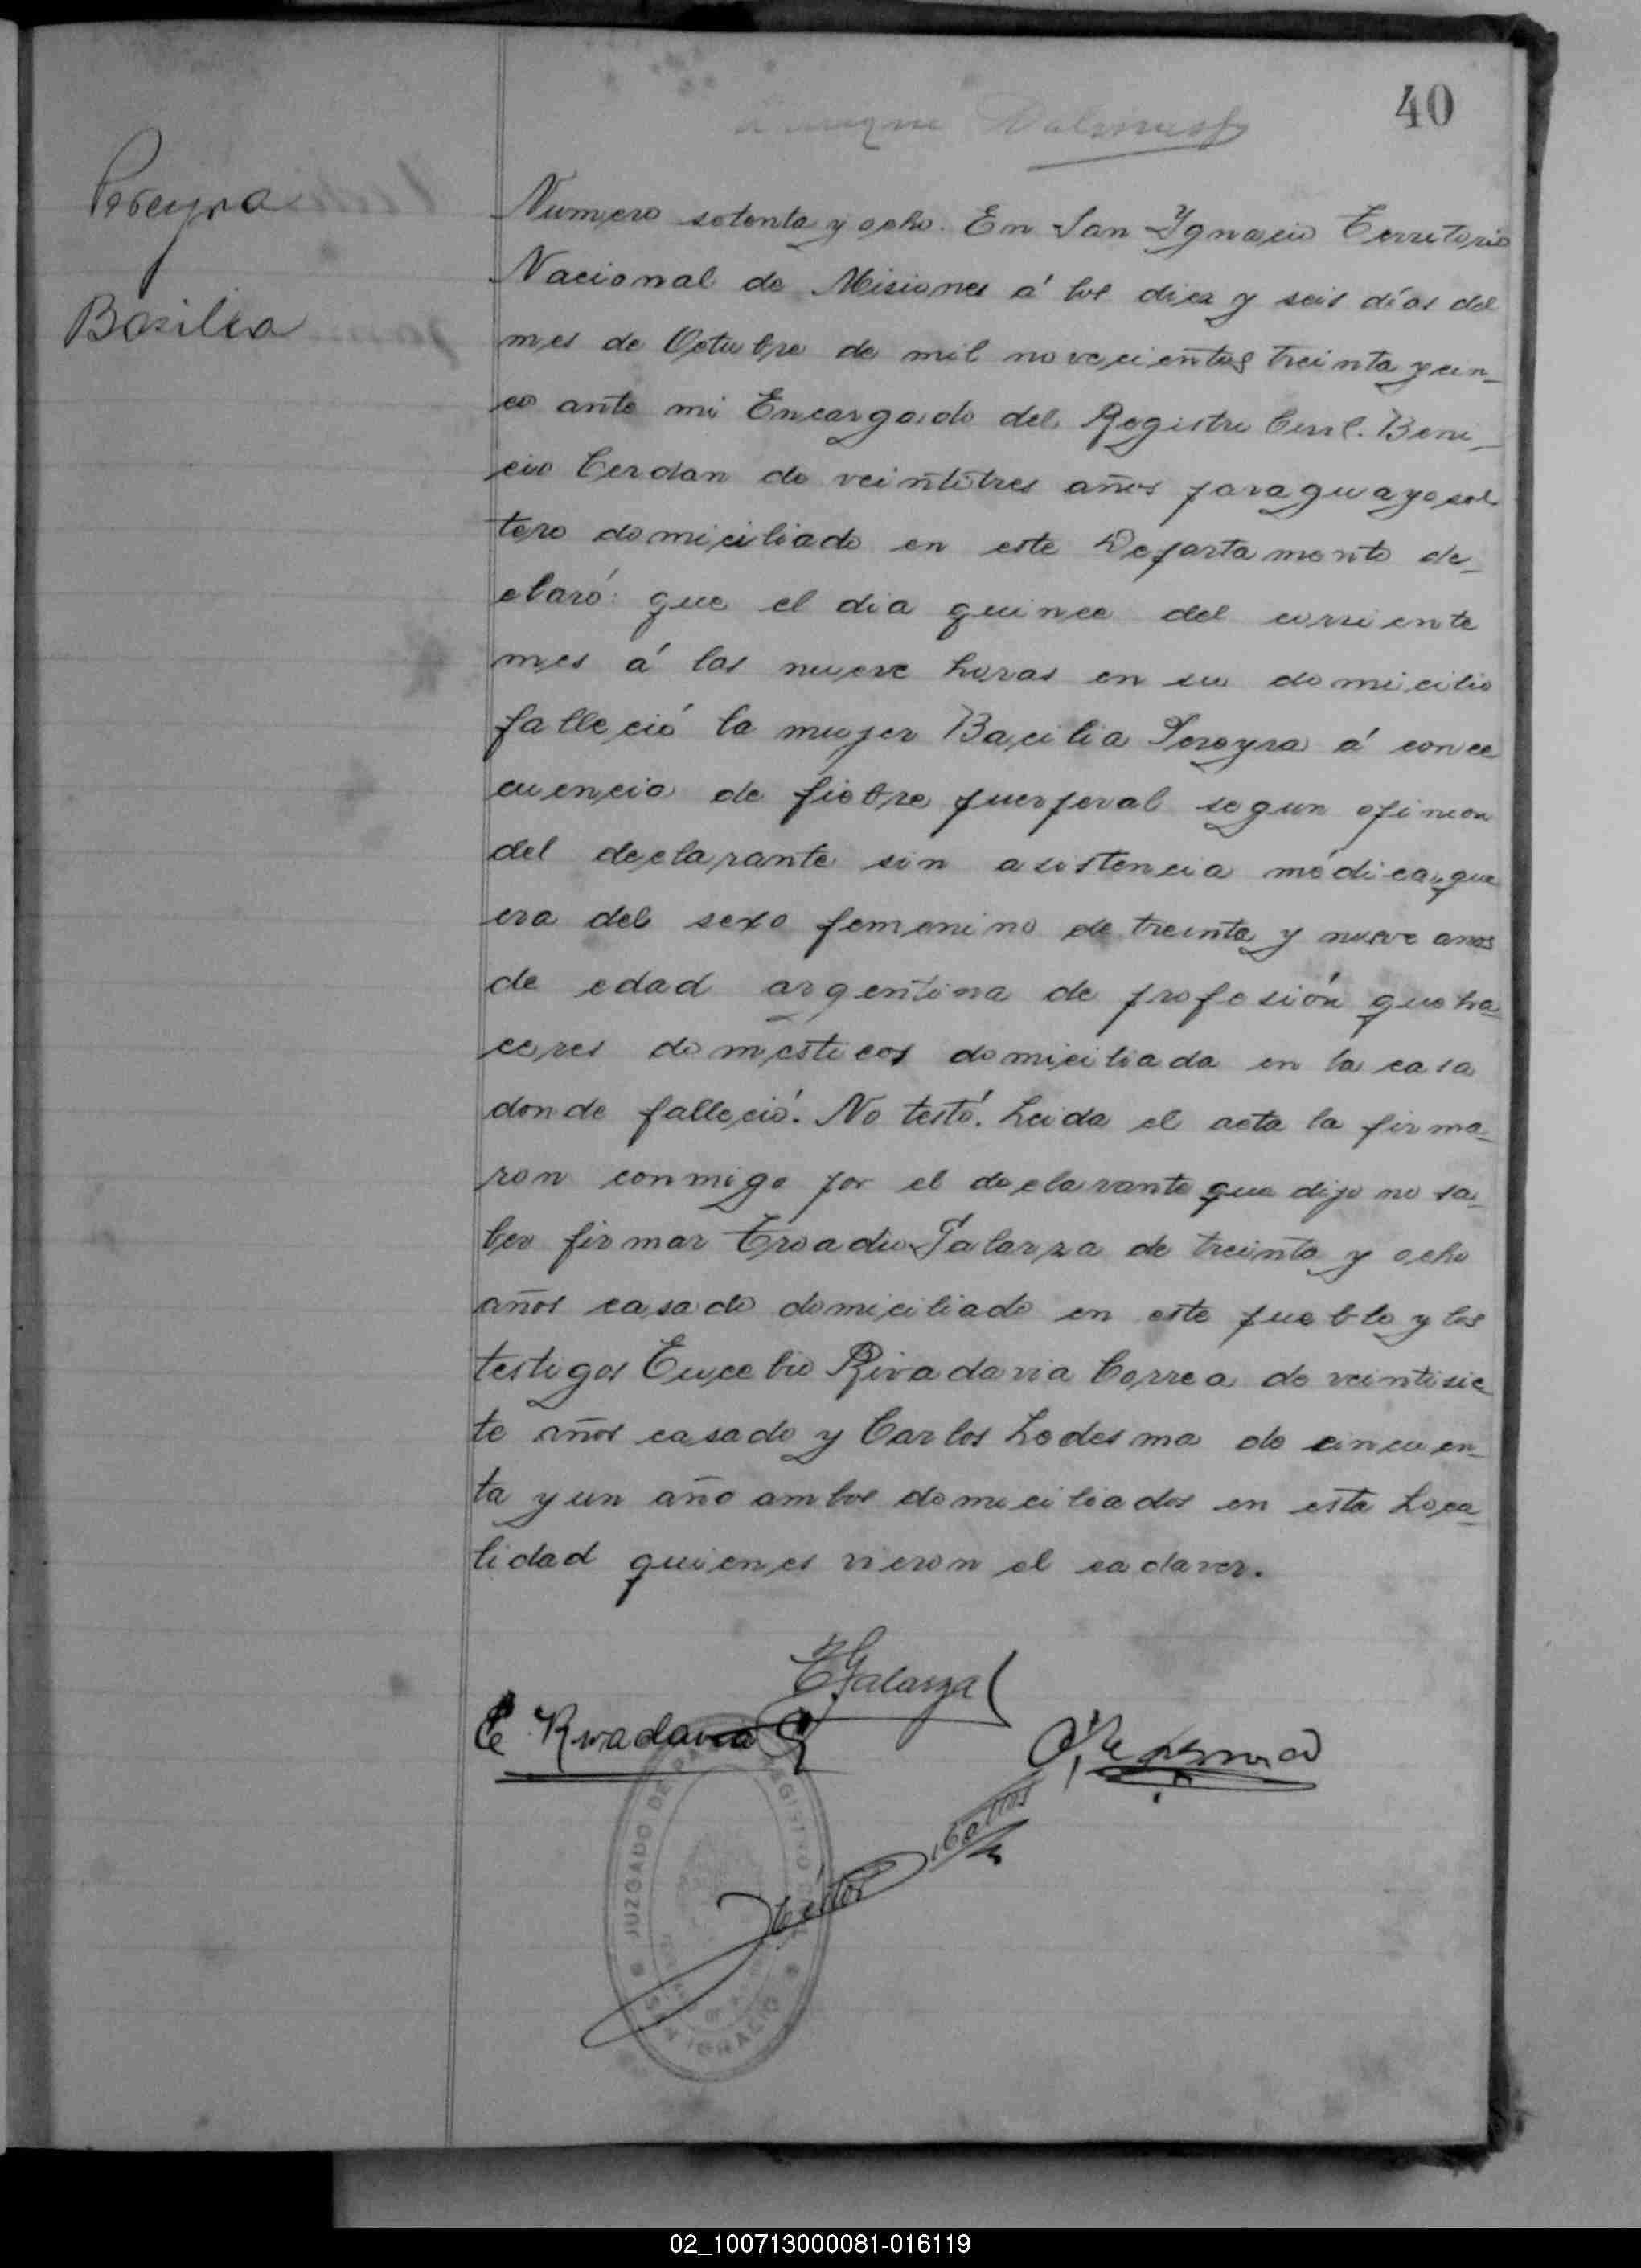 40
Pereyra
Basilia
Numero setenta y ocho. En San Ygnacio Territorio
Nacional de Misiones á los diez y seis días del
mes de Octubre de mil novecientos treinta y cin-
co ante mi Encargado del Registro Civil. Beni-
cio Cerdan de veintitres años paraguayo sol
tero domiciliado en este Departamento de-
claró: que el dia quince del corriente
mes á las nueve horas en su domicilio
falleció la mujer Bacilia Pereyra á conce
cuencia de fiebre puerperal segun opinion
del declarante sin asistencia médica, que
era del sexo femenino de treinta y nueve anos
de edad argentina de profesión queha
ceres domesticos domiciliada en la casa
donde falleció. No testó. Leida el acta la firma-
ron conmigo por el declarante que dijo no sa-
ber firmar Troadio Galarza de treinta y ocho
años casado domiciliado en este pueblo y los
testigos Eucebio Rivadavia Correa de veintisie
te años casado y Carlos Ledesma de cincuen-
ta y un año ambos domiciliados en esta Loca-
lidad quienes vieron el cadaver.
TGalarza
E Rivadavia C
JUZGADO DE PAZ
SAN IGNACIO
02_100713000081-016119